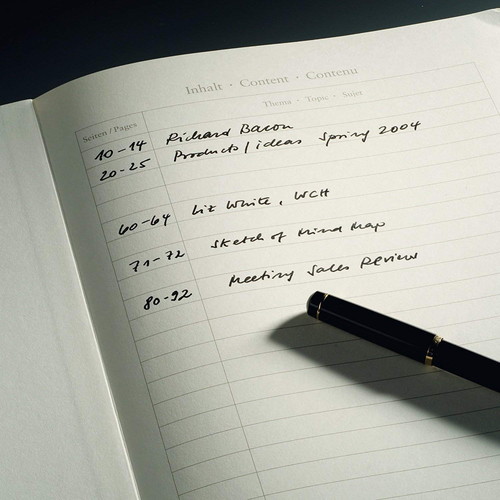 Inhalt · Content · Contenu
Seiten / Pages Thema · Topic · Sujet
10-14 Richard Bacon
20-25 Products/ideas Spring 2004
60-64 Liz White, WCH
71-72 Sketch of Mind Map
80-92 Meeting Sales Review